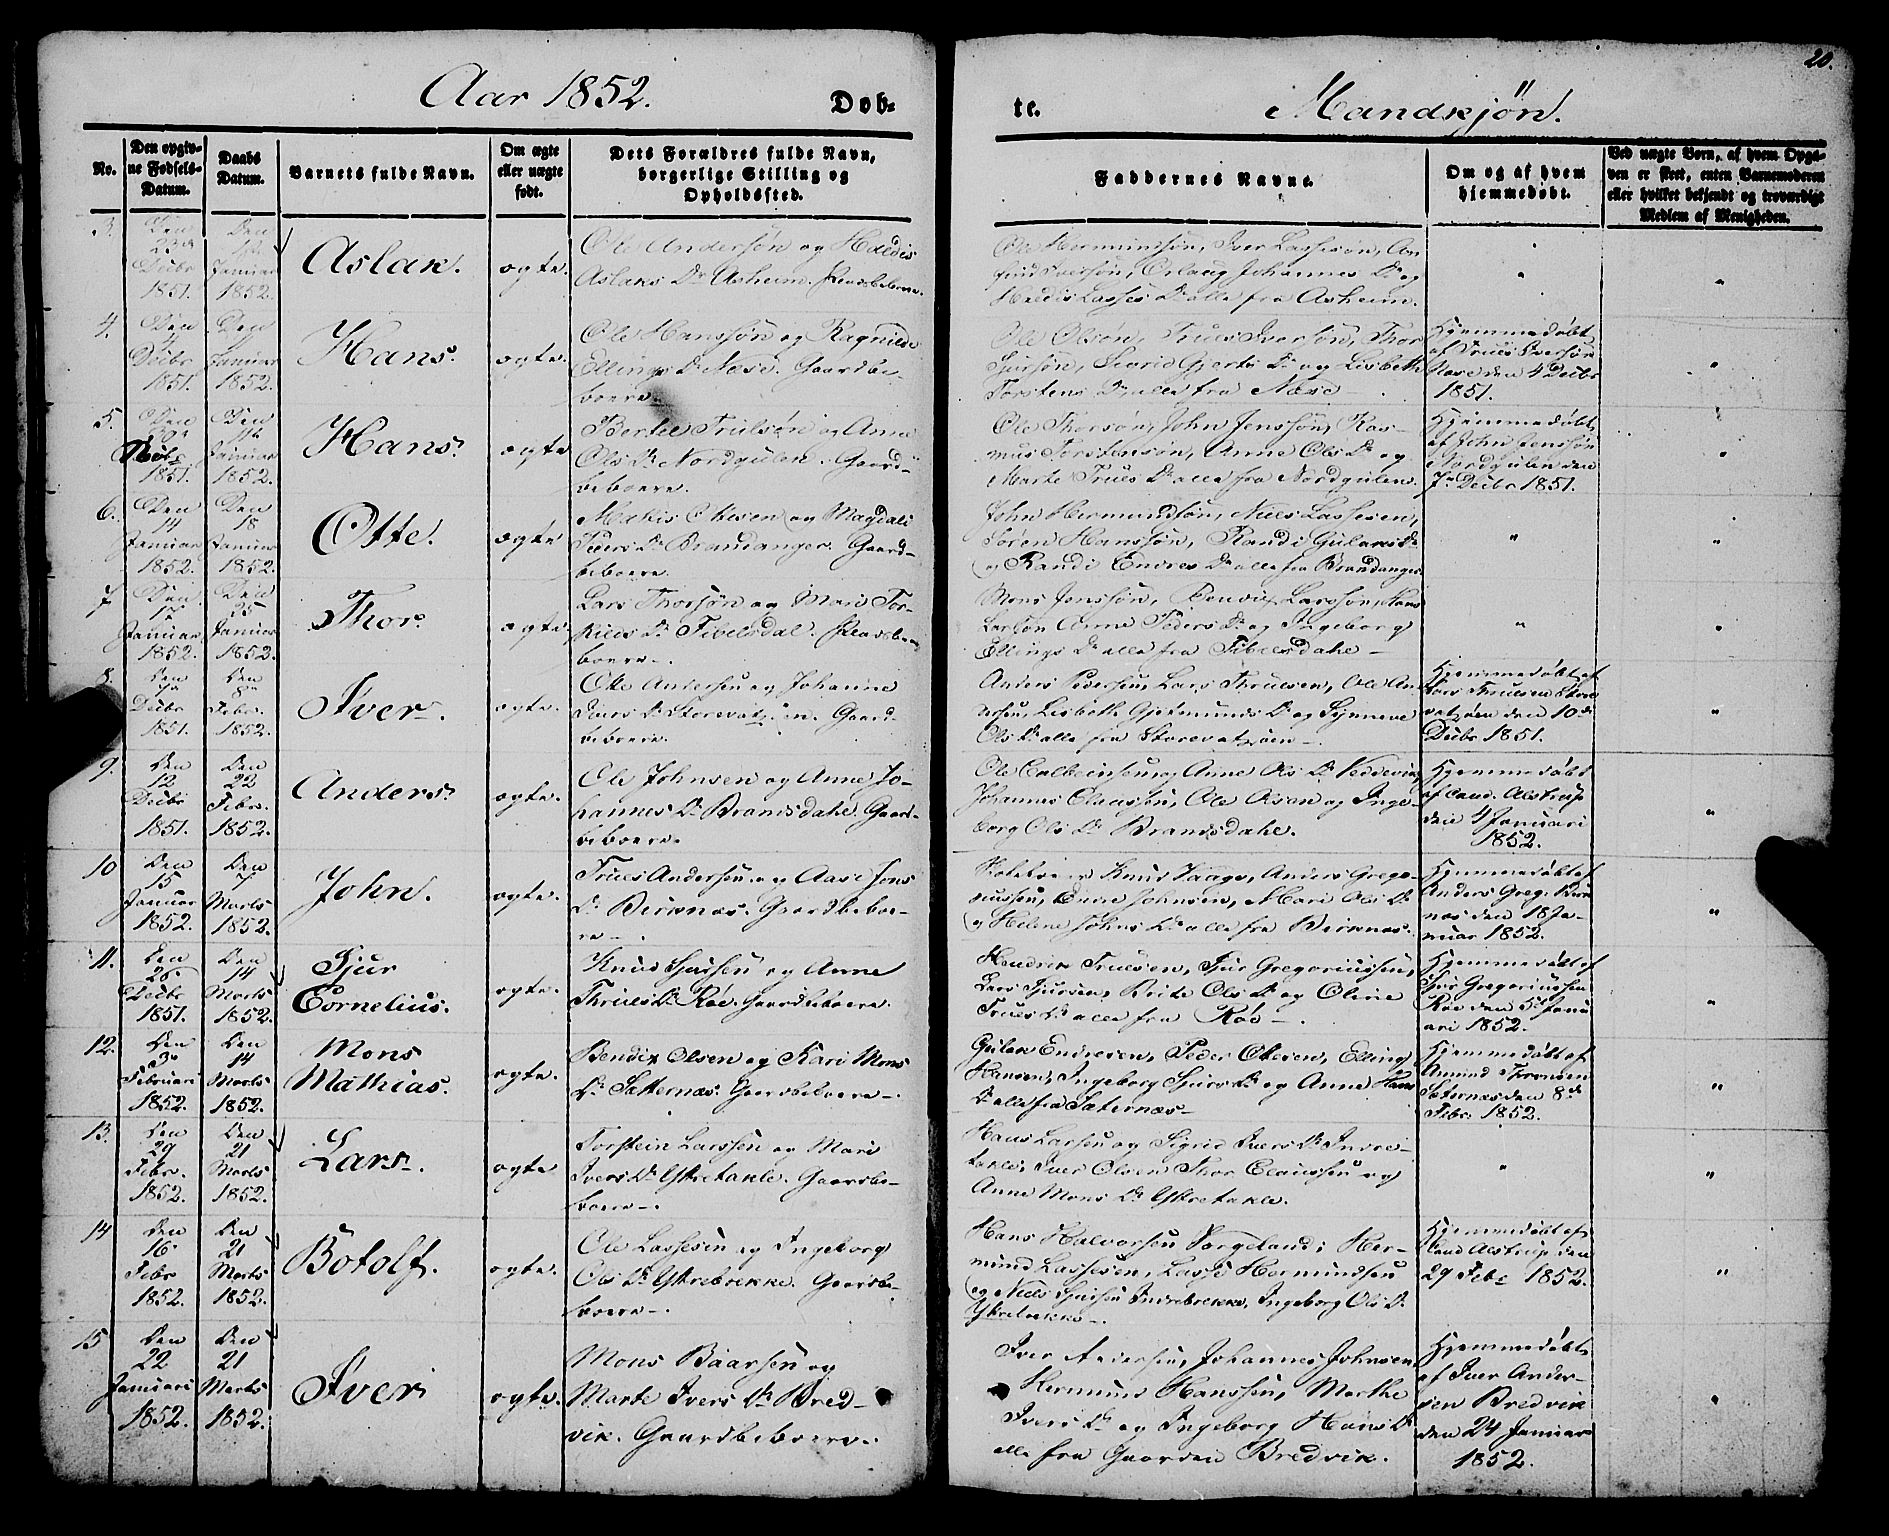 20.
Aar 1852. Døb-
te. Mandkjøn.
No.
Den opgiv-
ne Fødsels-
Datum.
Daabs
Datum.
Barnets fulde Navn.
Om ægte
eller uægte
født.
Dets Forældres fulde Navn,
borgerlige Stilling og
Opholdssted.
Faddernes Navne.
Om og af hvem
hjemmedøbt.
Ved uægte Børn, af hvem Opga-
ven er skeet, enten Barnemoderen
eller hvilket bekjendt og troværdigt
Medlem af Menigheden.
3.
Den
23de
Decbr
1851.
Den
Januar
1852.
Aslak.
ægte.
Ole Andersøn og Haldis
Aslaks Dr Aasheim.
Ole Hermundsøn, Iver Lassesøn, An
find Iversøn, Johannes Dr og
Haldis Lasses Dr alle fra Asheim.
4.
Den
4
Decbr
1851.
Den
Januar
1852.
Hans.
ægte.
Ole Hanssøn og Ragnilde
Ellings Dr Næse. Gaardbe-
boere.
Ole Olsøn, Truls Iversøn, Thor
Sjursøn, Sigrid Gjerts Dr og Lisbeth
Torstens Dr alle fra Næse
Hjemmedøbt
af Truls Iversøn
Næse den 4 Decbr
1851.
5.
Den
Novbr
1851.
Den
11te
Januar
1852.
Hans.
ægte
Bertel Trulsøn og Anne
Ols Dr Nordgulen. Gaard-
beboere.
Ole Thorsøn, John Jenssøn, Ras-
mus Torstensøn, Anne Ols Dr og
Marte Truls Dr alle fra Nordgulen.
Hjemmedøbt
af John Jenssøn
Nordgulen den
7de Decbr 1851.
6.
Den
14
Januar
1852.
Den
18
Januar
1852.
Otte.
ægte
Makis Olsen og Magdali
Peders Dr Brandanger. Gaard-
beboere.
John Hermundsøn, Niels Lassesen,
Søren Hanssøn, Randi Gulaks Dr
og Randi Endres Dr alle fra Brandanger
7
Den
17
Januar
1852.
Den
25
Januar
1852.
Thor.
ægte.
Lars Thorsøn og Mari Tor-
kilds Dr Tibelsdal.
boere.
Mons Jenssøn, Bendix Larssøn, Hans
Larssøn Anne Peders Dr og Ingeborg
Ellings Dr alle fra Tibelsdale
8.
Den
7de
Decbr
1851.
Den
8de
Febr.
1852.
Iver.
ægte.
Otte Andersen og Johanne
Ivers Dr Storevatzøen. Gaard-
beboere.
Anders Pedersen, Lars Thrulsen, Ole An
dersen, Lisbeth Gjetmunds Dr og Synneve
Ols Dr alle fra Storevatzøen.
Hjemmedøbt af
Lars Thrulsen Store
vatzøen den 10de
Decbr 1851.
9.
Den
12
Decbr
1851.
Den
22
Febr.
1852.
Anders.
ægte.
Ole Johnsen og Anne Jo-
hannes Dr Brandsdahe. Gaard-
beboere.
Ole Colbeinsen og Anne Ols Dr
Johannes Claussen, Ole Olsen og Inge-
borg Ols Dr Brandsdahe.
Hjemmedøbt
af Cand. Alstrup
den 4 Januari
1852.
10
Den
15
Januar
1852.
Den
7
Marts
1852.
John.
ægte.
Truls Andersen og Aase Jons
Dr Birknæs. Gaardbeboe-
re.
Knud Vaage, Anders Grego-
riussen, Enne Johnsen, Mari Ols Dr
og Helene Johns Dr alle fra Birknæs.
Hjemmedøbt af
Anders Greg. Birk
næs den 18 Ja-
nuar 1852.
11.
Den
26
Decbr
1851.
Den
14
Marts
1852.
Sjur
Cornelius.
ægte.
Knud Sjursen og Anne
Thruls Dr Røe. Gaardbeboere.
Hendrik Trulsen, Sjur Gregoriussen,
Lars Sjursen, Brite Ols Dr og Oline
Truls Dr alle fra Røe.
Hjemmedøbt af
Sjur Gregoriussen
Røe den 5te Janu
ari 1852.
12.
Den
3de
Februari
1852.
Den
14
Marts
1852.
Mons
Mathias.
ægte.
Bendix Olsen og Kari Mons
Dr Sætternæs. Gaardbeboere.
Gulak Endresen, Peder Olsen, Elling
Hansen, Ingeborg Sjurs Dr og Anne Hans
Dr alle fra Sæternæs
Hjemmedøbt af
Amund Thronsen
Sæternæs den 8de
Febr. 1852.
13.
Den
29
Febr.
1852.
Den
21
Marts
1852.
Lars.
ægte
Torstein Larssen og Mari
Ivers Dr Ystretakle. Gaardbe-
boere.
Hans Larsen og Sigrid Ivers Dr Indre-
takle, Iver Olsen Thor Claussen og
Anne Mons Dr Ystretakle.
14
Den
16
Febr
1852.
Den
21
Marts
1852.
Botolf.
ægte.
Ole Lassesen og Ingeborg
Ols Dr Ystrebrekke. Gaardbe-
boere.
Hans Halvorsen Børgeland, Her-
mund Lassesen, Lasse Hermundsen
og Niels Sjursen Indrebrekke, Ingeborg Ols Dr
Ystrebrekke.
Hjemmedøbt af
Cand Alstrup den
29 Febr 1852.
15
Den
22
Januari
1852.
Den
21
Marts
1852.
Iver
ægte.
Mons Baarsen og
Marte Ivers Dr Bred-
vik. Gaardbeboere.
Iver Andersen, Johannes Johnsen,
Hermund Hanssen, Marthe
Ivers Dr og Ingeborg Hans Dr
alle fra Gaarden Bredvik.
Hjemmedøbt
af Iver Ander-
sen Bredvik
den 24 Januar
1852.